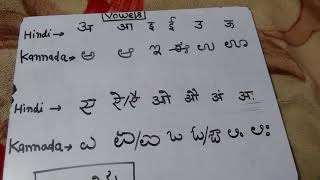 Vowels
Hindi → अ आ इ ई उ ऊ
Kannada → ಅ ಆ ಇ ಈ ಉ ಊ
Hindi → ऐ/ऐ ओ औ अं अः
Kannada → ಎ ಏ/ಐ ಒ ಓ/ಔ ಅಂ ಅಃ